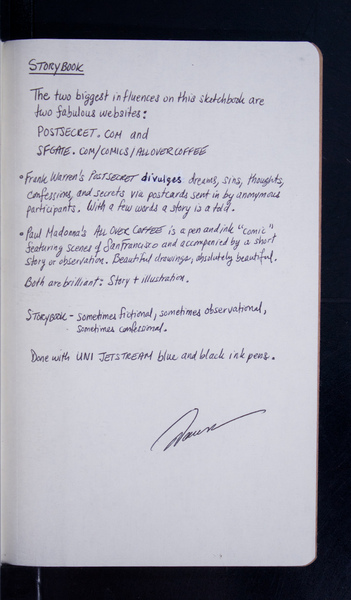 STORYBOOK
The two biggest influences on this sketchbook are
two fabulous websites:
POSTSECRET.COM and
SFGATE.COM/COMICS/ALLOVERCOFFEE
• Frank Warren's POSTSECRET divulges dreams, sins, thoughts,
confessions, and secrets via postcards sent in by anonymous
participants. With a few words a story is a told.
• Paul Madonna's ALL OVER COFFEE is a pen and ink "comic"
featuring scenes of San Francisco and accompanied by a short
story or observation. Beautiful drawings, absolutely beautiful.
Both are brilliant: Story + illustration.
STORYBOOK - sometimes fictional, sometimes observational,
sometimes confessional.
Done with UNI JETSTREAM blue and black ink pens.